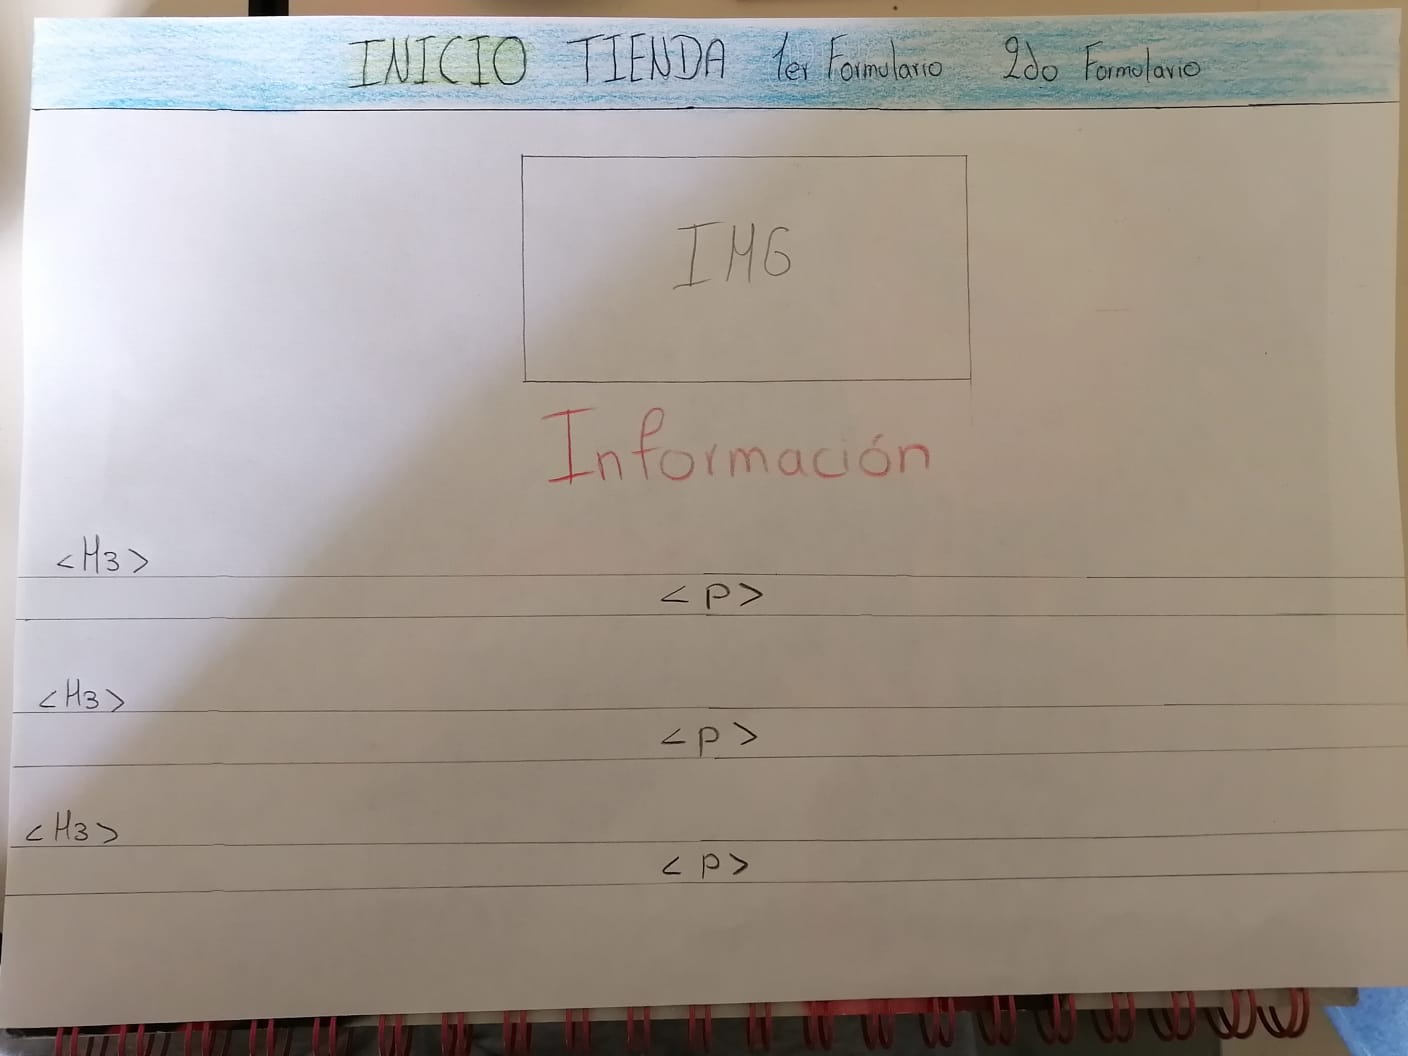 INICIO TIENDA 1er Formulario 2do Formulario
IMG
Información
<H3>
<P>
<H3>
<P>
<H3>
<P>